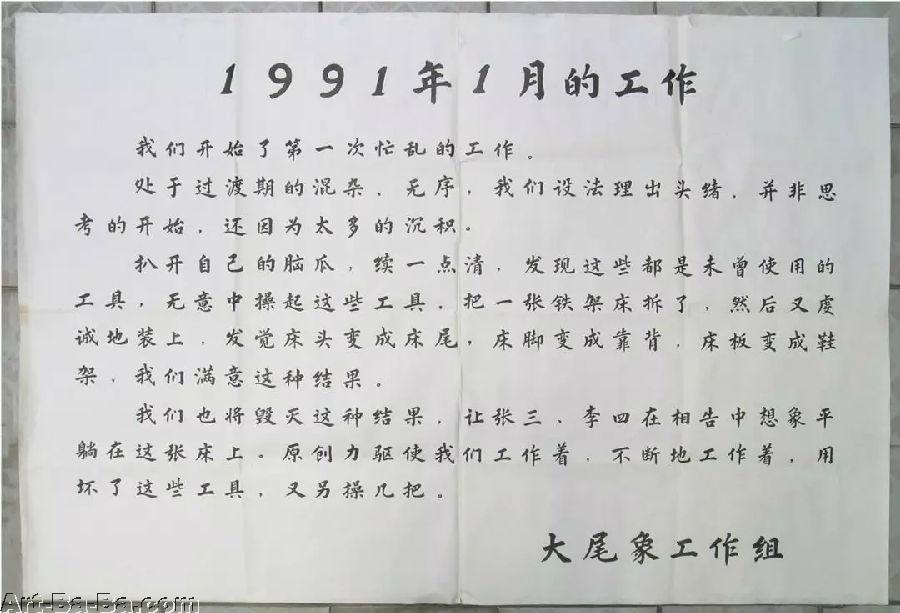 1991年1月的工作
我们开始了第一次忙乱的工作。
处于过渡期的混杂、无序，我们设法理出头绪，并非思
考的开始，还因为太多的沉积。
扒开自己的脑瓜，续一点清，发现这些都是未曾使用的
工具，无意中操起这些工具，把一张铁架床拆了，然后又虔
诚地装上，发觉床头变成床尾，床脚变成靠背，床板变成鞋
架，我们满意这种结果。
我们也将毁灭这种结果，让张三、李四在相告中想象平
躺在这张床上。原创力驱使我们工作着，不断地工作着，用
坏了这些工具，又另操几把。
大尾象工作组
Art-Ba-Ba.com